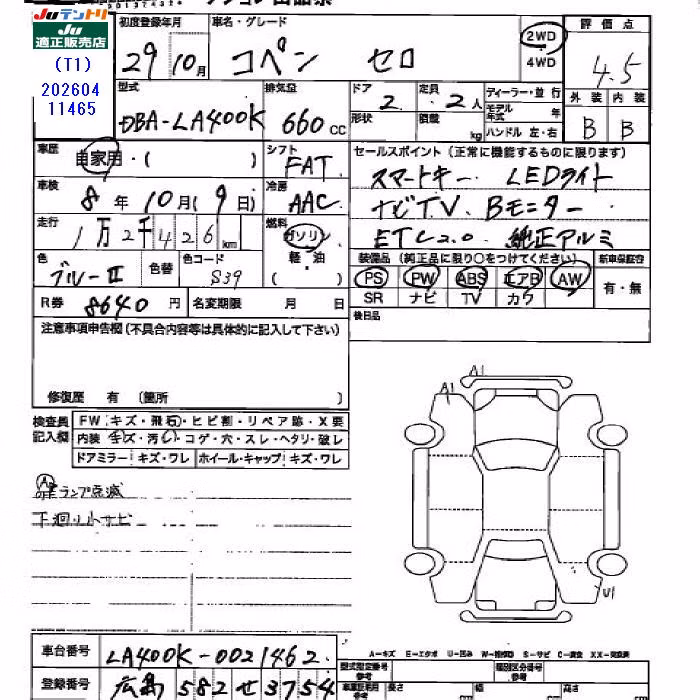 Juテントリ
Ju
適正販売店
(T1)
202604
11465
初度登録年月 車名・グレード 評価点
29 10月 コペン セロ 2WD 4WD 4.5
型式 排気量 ドア 定員 ディーラー・並行 外装 内装
DBA-LA400K 660cc 2 2人 モデル年式 年 B B
形状 積載 kg ハンドル 左・右
車歴 シフト セールスポイント(正常に機能するものに限ります)
自家用・( ) FAT スマートキー LEDライト
車検 冷房
8年10月(9日) AAC ナビTV. Bモニター
走行 燃料
1万2千426km ガソリン ETC2.0. 純正アルミ
色 色替 色コード 軽・油 装備品(純正品に限り○をつけてください) 新車保証書
ブルーII S39 ( ) PS PW ABS エアB AW 有・無
R券 8640円 名変期限 月 日 SR ナビ TV カワ
注意事項申告欄(不具合内容等は具体的に記入して下さい) 後日品
修復歴 有 (箇所 )
検査員記入欄 FW キズ・飛石・ヒビ割・リペア跡・X要
内装 キズ・汚レ・コゲ・穴・スレ・ヘタリ・破レ
ドアミラー キズ・ワレ ホイール・キャップ キズ・ワレ
A1
A1
ランプ点滅
下廻り小サビ
U1
A-キズ E-エクボ U-凹み S-サビ C-腐食 XX-交換済
車台番号 LA400K-0021462
型式指定番号 参考 類別区分番号 参考
登録番号 広島 582 せ 3754
長さ 幅 高さ